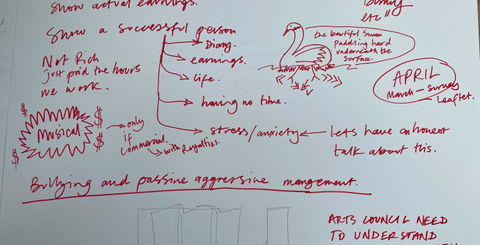 show actual earnings.
Show a successful person
Diary.
earnings.
life.
having no time.
stress/anxiety
lets have an honest
talk about this.
Not Rich
just paid the hours
we work.
Musical
only
if
commercial.
with Royalties.
the beutiful Swan
Paddling hard
underneath the
surface.
etc"
APRIL
March - Survey
Leaflet.
Bullying and passive aggressive mangement.
ARTS COUNCIL NEED
TO UNDERSTAND